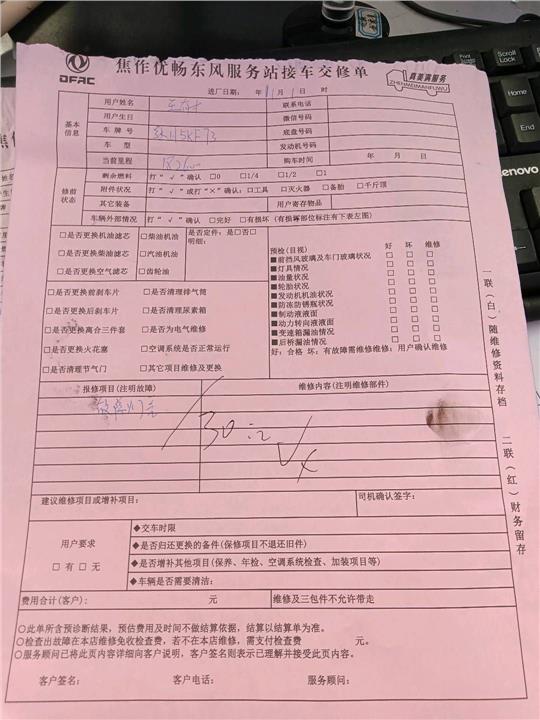 DFAC
焦作优畅东风服务站接车交修单
真美满服务
ZHENMEIMANFUWU
进厂日期: 年 11 月 1 日 时
基本信息
用户姓名 联系电话
用户生日 微信号码
车牌号 底盘号码
车型 发动机号码
当前里程 购车时间 年 月 日
修前状态
剩余燃料 打“√”确认 □0 □1/4 □1/2 □1
附件状况 打“√”或打“×”确认:□工具 □灭火器 □备胎 □千斤顶
其它装备 用户寄存物品
车辆外部情况 打“√”确认 □完好 □有损坏(有损坏部位标注有下表左图)
□是否更换机油滤芯 □柴油机油 是否定件:是□否□
□是否更换柴油滤芯 □汽油机油 明细:
□是否更换空气滤芯 □齿轮油
□是否更换前刹车片 □是否清理排气筒
□是否更换后刹车片 □是否清理尿素箱
□是否更换离合三件套 □是否为电气维修
□是否更换火花塞 □空调系统是否正常运行
□是否清理节气门 □其它项目维修及更换
预检(目视) 好 坏 维修
■前挡风玻璃及车门玻璃状况 □ □ □
■灯具情况 □ □ □
■油量状况 □ □ □
■轮胎状况 □ □ □
■发动机机油状况 □ □ □
■防冻防锈瓶状况 □ □ □
■制动液液面 □ □ □
■动力转向液液面 □ □ □
■变速箱漏油情况 □ □ □
■后桥漏油情况 □ □ □
好:合格 坏:有故障需维修维修:用户确认维修
报修项目(注明故障) 维修内容(注明维修部件)
故障灯亮
130
建议维修项目或增补项目: 司机确认签字:
用户要求
□有□无
◆交车时限
◆是否归还更换的备件(保修项目不退还旧件)
◆是否增补其他项目(保养、年检、空调系统检查、加装项目等)
◆车辆是否需要清洁:
费用合计(客户): 元 维修及三包件不允许带走
○此单所含预诊断结果,预估费用及时间不做结算依据,结算以结算单为准。
○检查出故障在本店维修免收检查费,若不在本店维修,需支付检查费 元。
○服务顾问已将此页内容详细向客户说明,客户签名则表示已理解并接受此页内容。
客户签名: 客户电话: 服务顾问:
一联(白)随维修资料存档 二联(红)财务留存
Print Screen
Scroll Lock
Home
End
lenovo